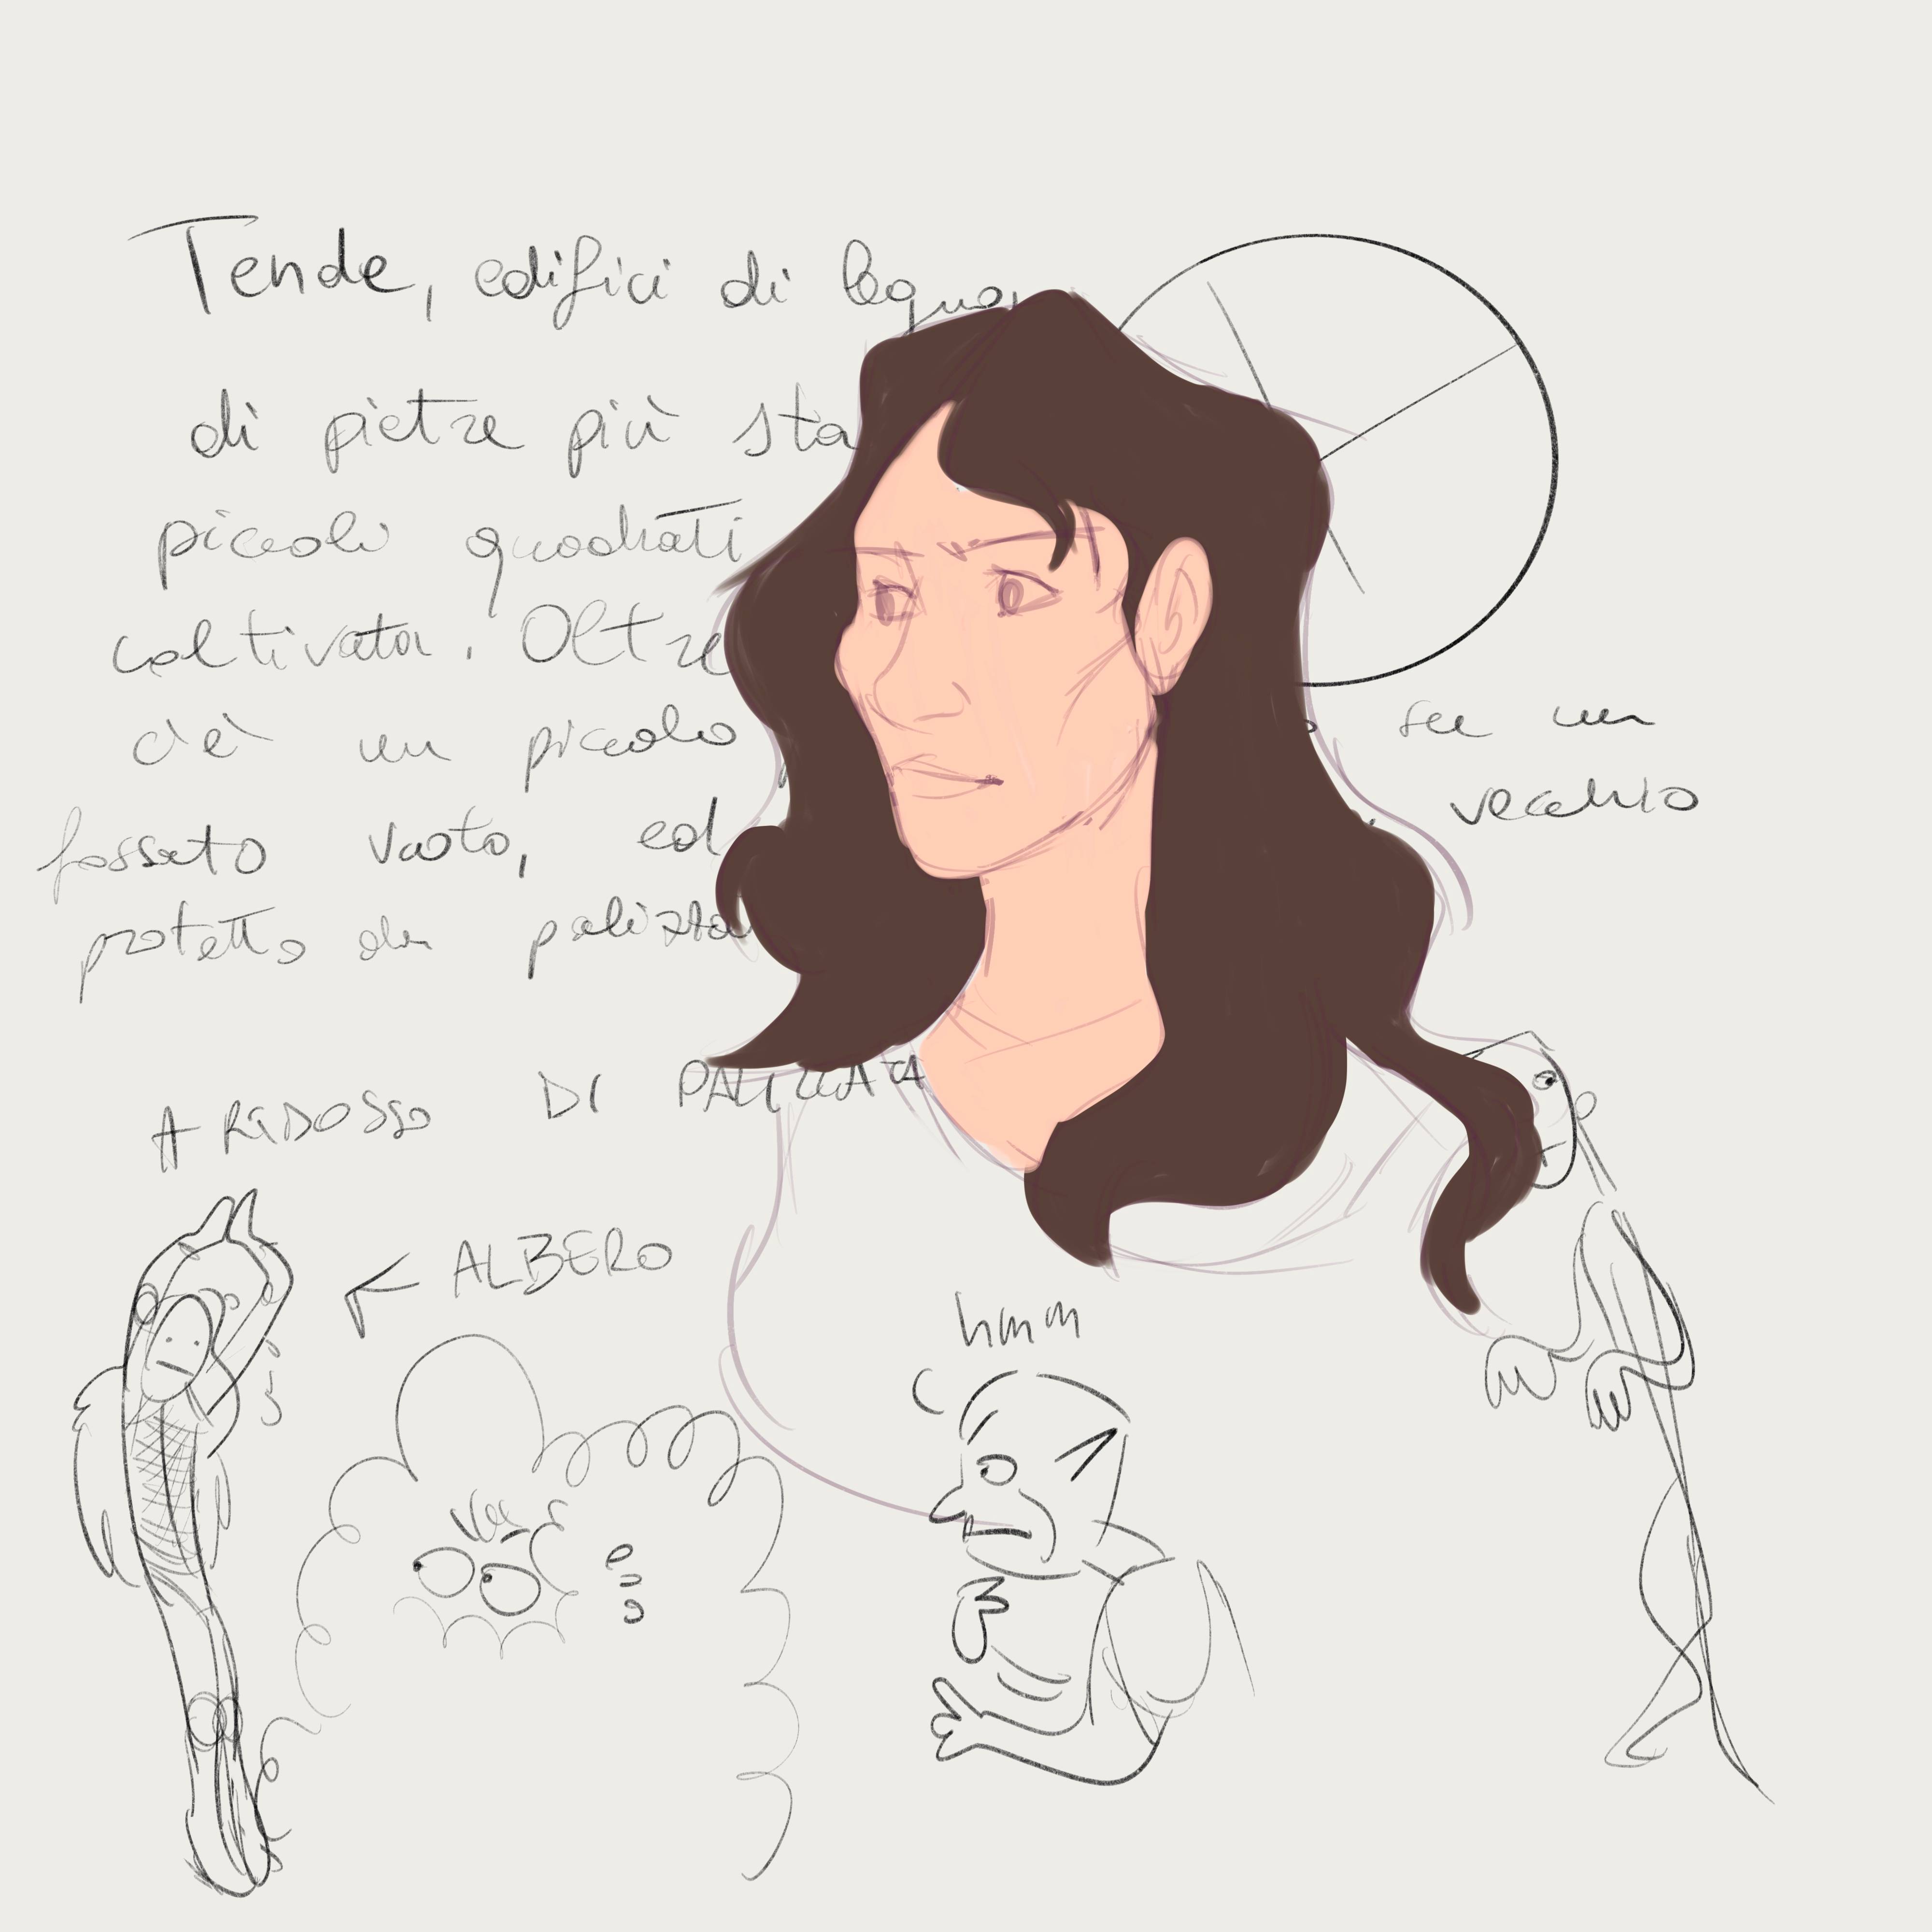 Tende, edifici di legno,
di pietre più sta
piccoli quadrati
coltivata. Oltre
c'è un piccolo su un
fossato vuoto, ed vecchio
protetto da palizza
A RIDOSSO DI PALIZZATA
← ALBERO
hmm